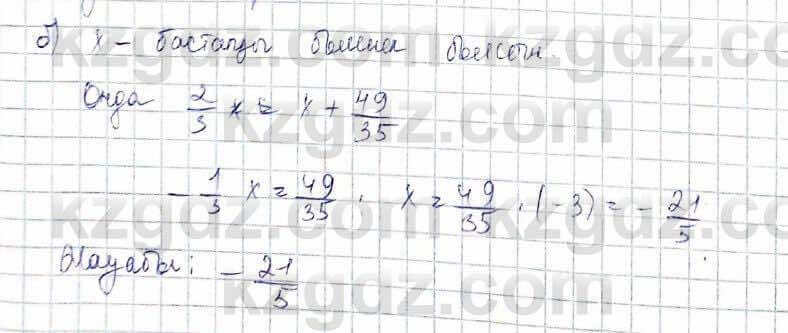 б) х - бастапқы бөлшек болсын.
Онда 2/3 х = х + 49/35
- 1/3 х = 49/35, х = 49/35 · (-3) = - 21/5.
Жауабы: - 21/5
kzgdz.com